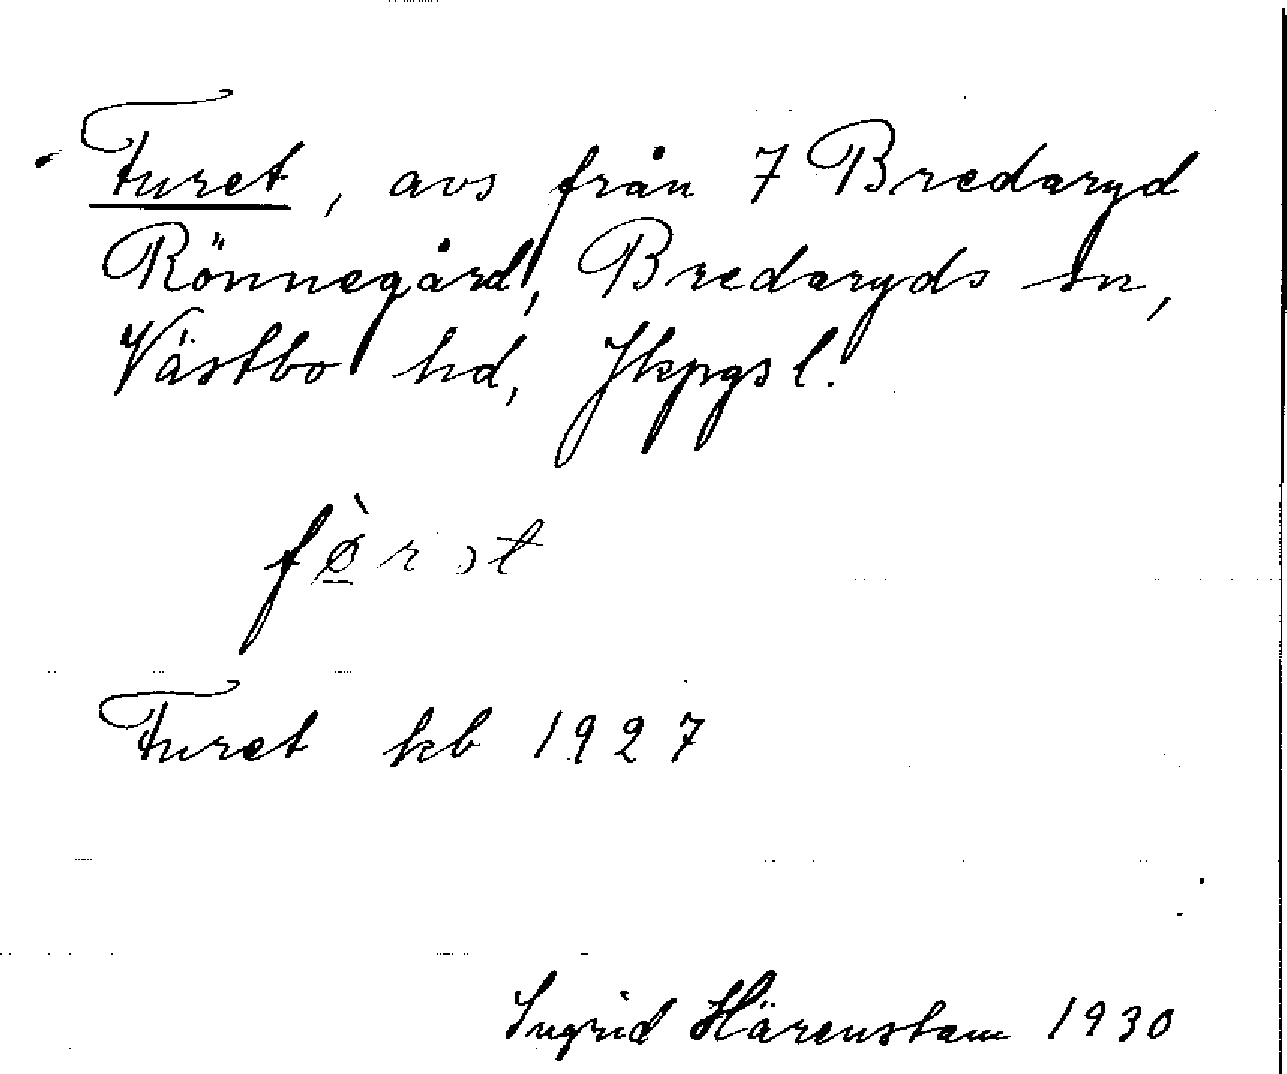 Furet, avs från 7 Bredaryd
Rönnegård, Bredaryds sn,
Västbo hd, Jkpgs l.
Furet kb 1927
Ingrid Härenstam 1930